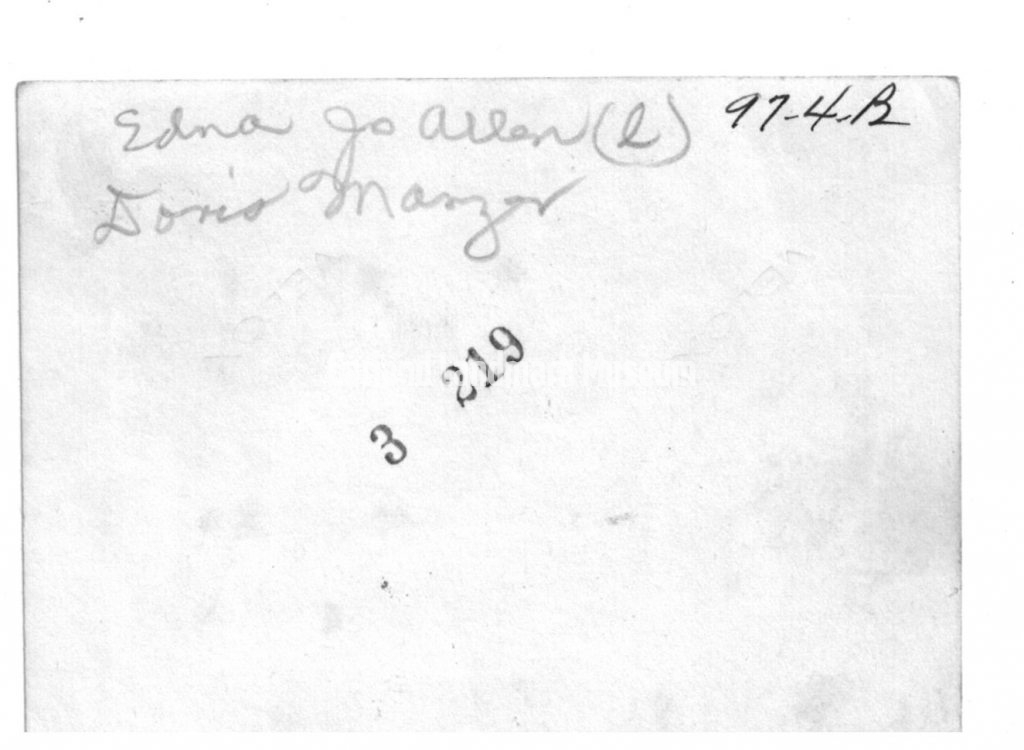 Edna Jo Allen (l) 97-4-B
Doris Manzer
3 219
Museum